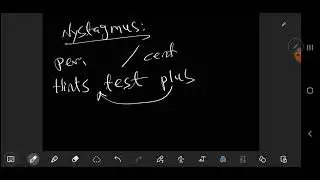 Nystagmus:
per. / cent
Hints test plus